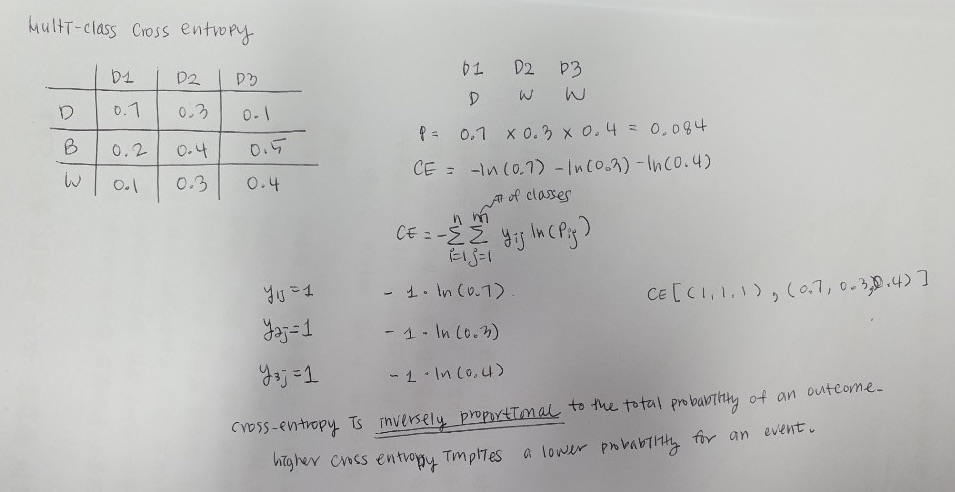 Multi-class Cross entropy
D1 D2 D3
D 0.7 0.3 0.1
B 0.2 0.4 0.5
W 0.1 0.3 0.4
D1 D2 D3
D W W
P = 0.7 × 0.3 × 0.4 = 0.084
CE = -ln(0.7) - ln(0.3) - ln(0.4)
# of classes
CE = -∑_{i=1}^{n} ∑_{j=1}^{m} y_{ij} ln(P_{ij})
y_{1j}=1 - 1 · ln(0.7)
CE[(1,1,1), (0.7, 0.3, 0.4)]
y_{2j}=1 - 1 · ln(0.3)
y_{3j}=1 - 1 · ln(0.4)
cross-entropy is inversely proportional to the total probability of an outcome.
higher cross entropy implies a lower probability for an event.